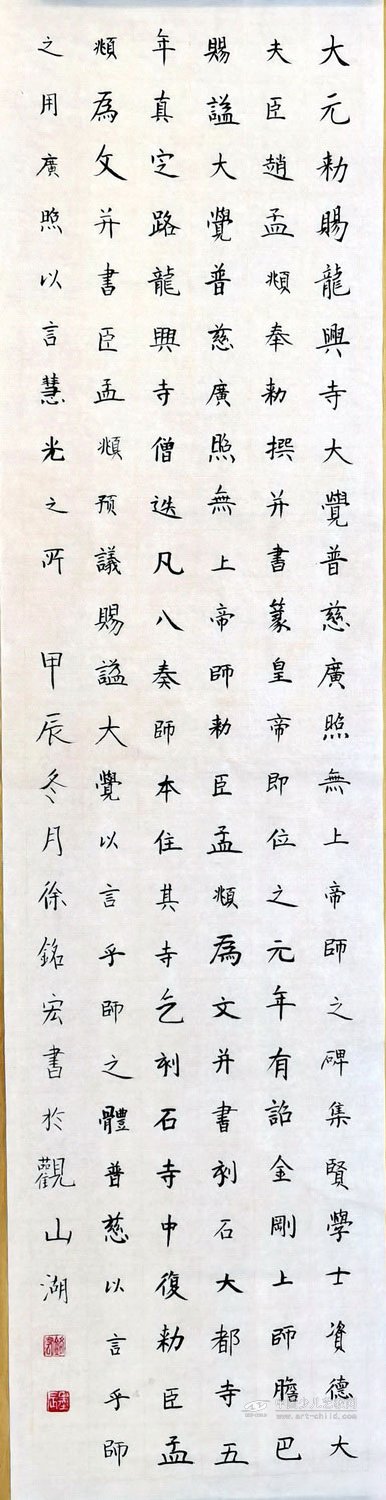 大元勅賜龍興寺大覺普慈廣照無上帝師之碑集賢學士資德大
夫臣趙孟頫奉勅撰并書篆皇帝即位之元年有詔金剛上師膽巴
賜謚大覺普慈廣照無上帝師勅臣孟頫為文并書刻石大都寺五
年真定路龍興寺僧迭凡八奏師本住其寺乞刻石寺中復勅臣孟
頫為文并書臣孟頫預議賜謚大覺以言乎師之體普慈以言乎師
之用廣照以言慧光之所 甲辰冬月徐銘宏書於觀山湖
www.art-child.com